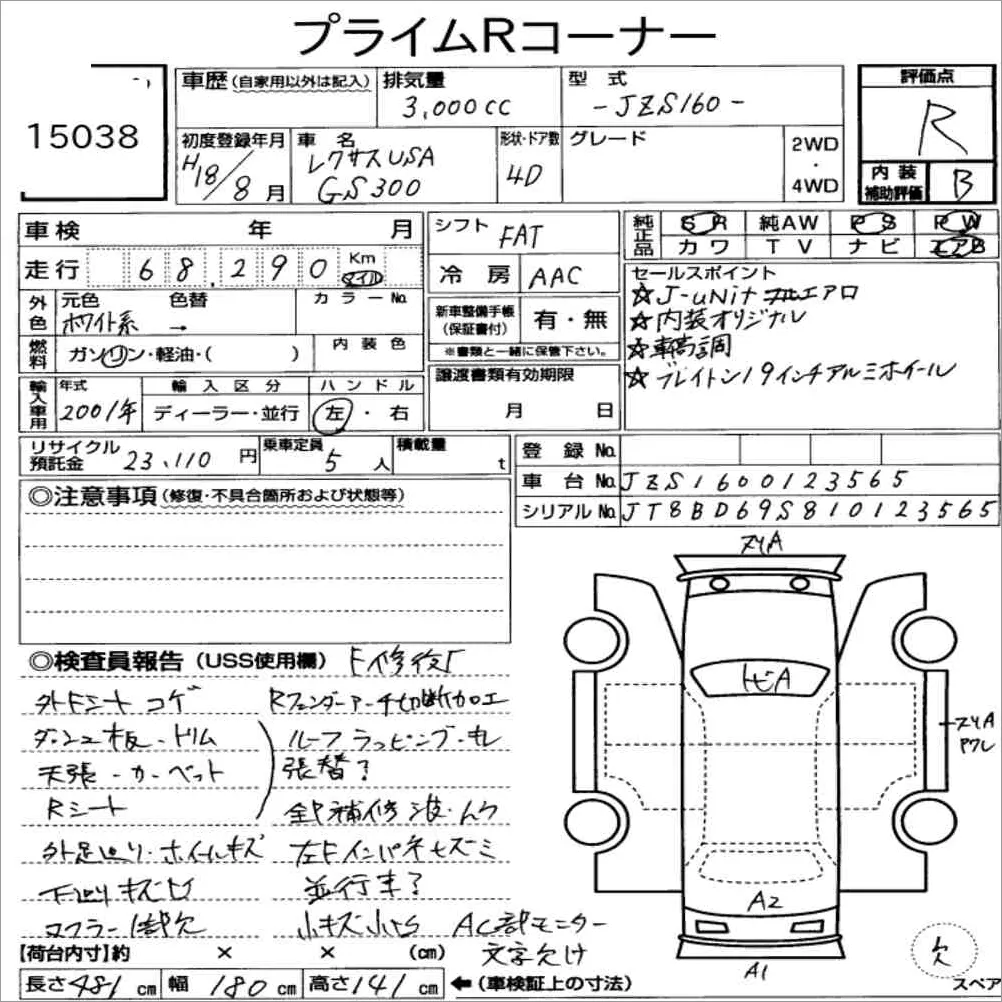 プライムRコーナー
15038
車歴(自家用以外は記入)
排気量
3,000cc
型式
-JZS160-
評価点
R
初度登録年月
H18/8月
車名
レクサスUSA
GS300
形状・ドア数
4D
グレード
2WD
・
4WD
内装
補助評価
B
車検 年 月
シフト
FAT
純正品
SR 純AW PS PW
カワ TV ナビ エアB
走行 68,290 Km
マイル
冷房
AAC
セールスポイント
☆J-uNiT フルエアロ
☆内装オリジナル
☆車高調
☆ブレイトン19インチアルミホイール
外色
元色 色替
ホワイト系 →
カラーNo.
新車整備手帳
(保証書付)
有・無
※書類と一緒に保管下さい。
燃料
ガソリン・軽油・( )
内装色
譲渡書類有効期限
月 日
輸入車用
年式
2001年
輸入区分
ディーラー・並行
ハンドル
左・右
リサイクル
預託金 23,110円
乗車定員
5人
積載量
t
登録No.
車台No. JZS1600123565
シリアルNo. JT8BD69S810123565
◎注意事項(修復・不具合箇所および状態等)
◎検査員報告(USS使用欄)
外Dシート コゲ
Rフェンダーアーチ切断加工
ダッシュ板・トリム
ルーフラッピング・キレ
天張・カーペット
張替?
Rシート
全P補修波・ムラ
外足廻り・ホイールキズ
左Fインパネキズミ
下廻りキズサビ
並行車?
マフラー1部欠
小キズ小凹
AC部モニター
文字欠け
ヌリA
トビA
ヌリA
ワレ
A2
A1
欠
スペア
【荷台内寸】約 × × (cm)
長さ481cm 幅180cm 高さ141cm ←(車検証上の寸法)